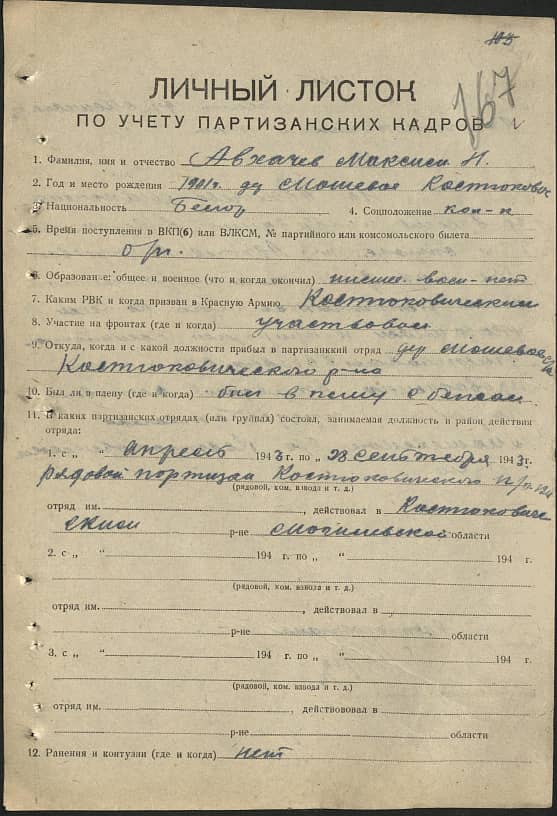 167
ЛИЧНЫЙ ЛИСТОК
ПО УЧЕТУ ПАРТИЗАНСКИХ КАДРОВ
1. Фамилия, имя и отчество Авхачев Максим И.
2. Год и место рождения 1901 г. де Мошевое Костюкович
3. Национальность Белор 4. Соцположение кол-к
5. Время поступления в ВКП(б) или ВЛКСМ, № партийного или комсомольского билета
б/п.
6. Образование: общее и военное (что и когда окончил) низшее воен-нет
7. Каким РВК и когда призван в Красную Армию Костюковическим
8. Участие на фронтах (где и когда) участвовал
9. Откуда, когда и с какой должности прибыл в партизанкий отряд дер Мошевое
Костюковического р-на
10. Был ли в плену (где и когда) был в плену
11. В каких партизанских отрядах (или группах) состоял, занимаемая должность и район действия
отряда:
1. с „ апрель 1943 г. по „ 28 сентября 1943 г.
рядовой партизан Костюковического
(рядовой, ком. взвода и т. д.)
отряд им. , действовал в Костюкович
ском р-не Могилевской области
2. с „ “ 194 г. по „ “ 194 г.
(рядовой, ком. взвода и т. д.)
отряд им. , действовал в
р-не области
3. с „ “ 194 г. по „ “ 194 г.
(рядовой, ком. взвода и т. д.)
отряд им. , действововал в
р-не области
12. Ранения и контузии (где и когда) нет